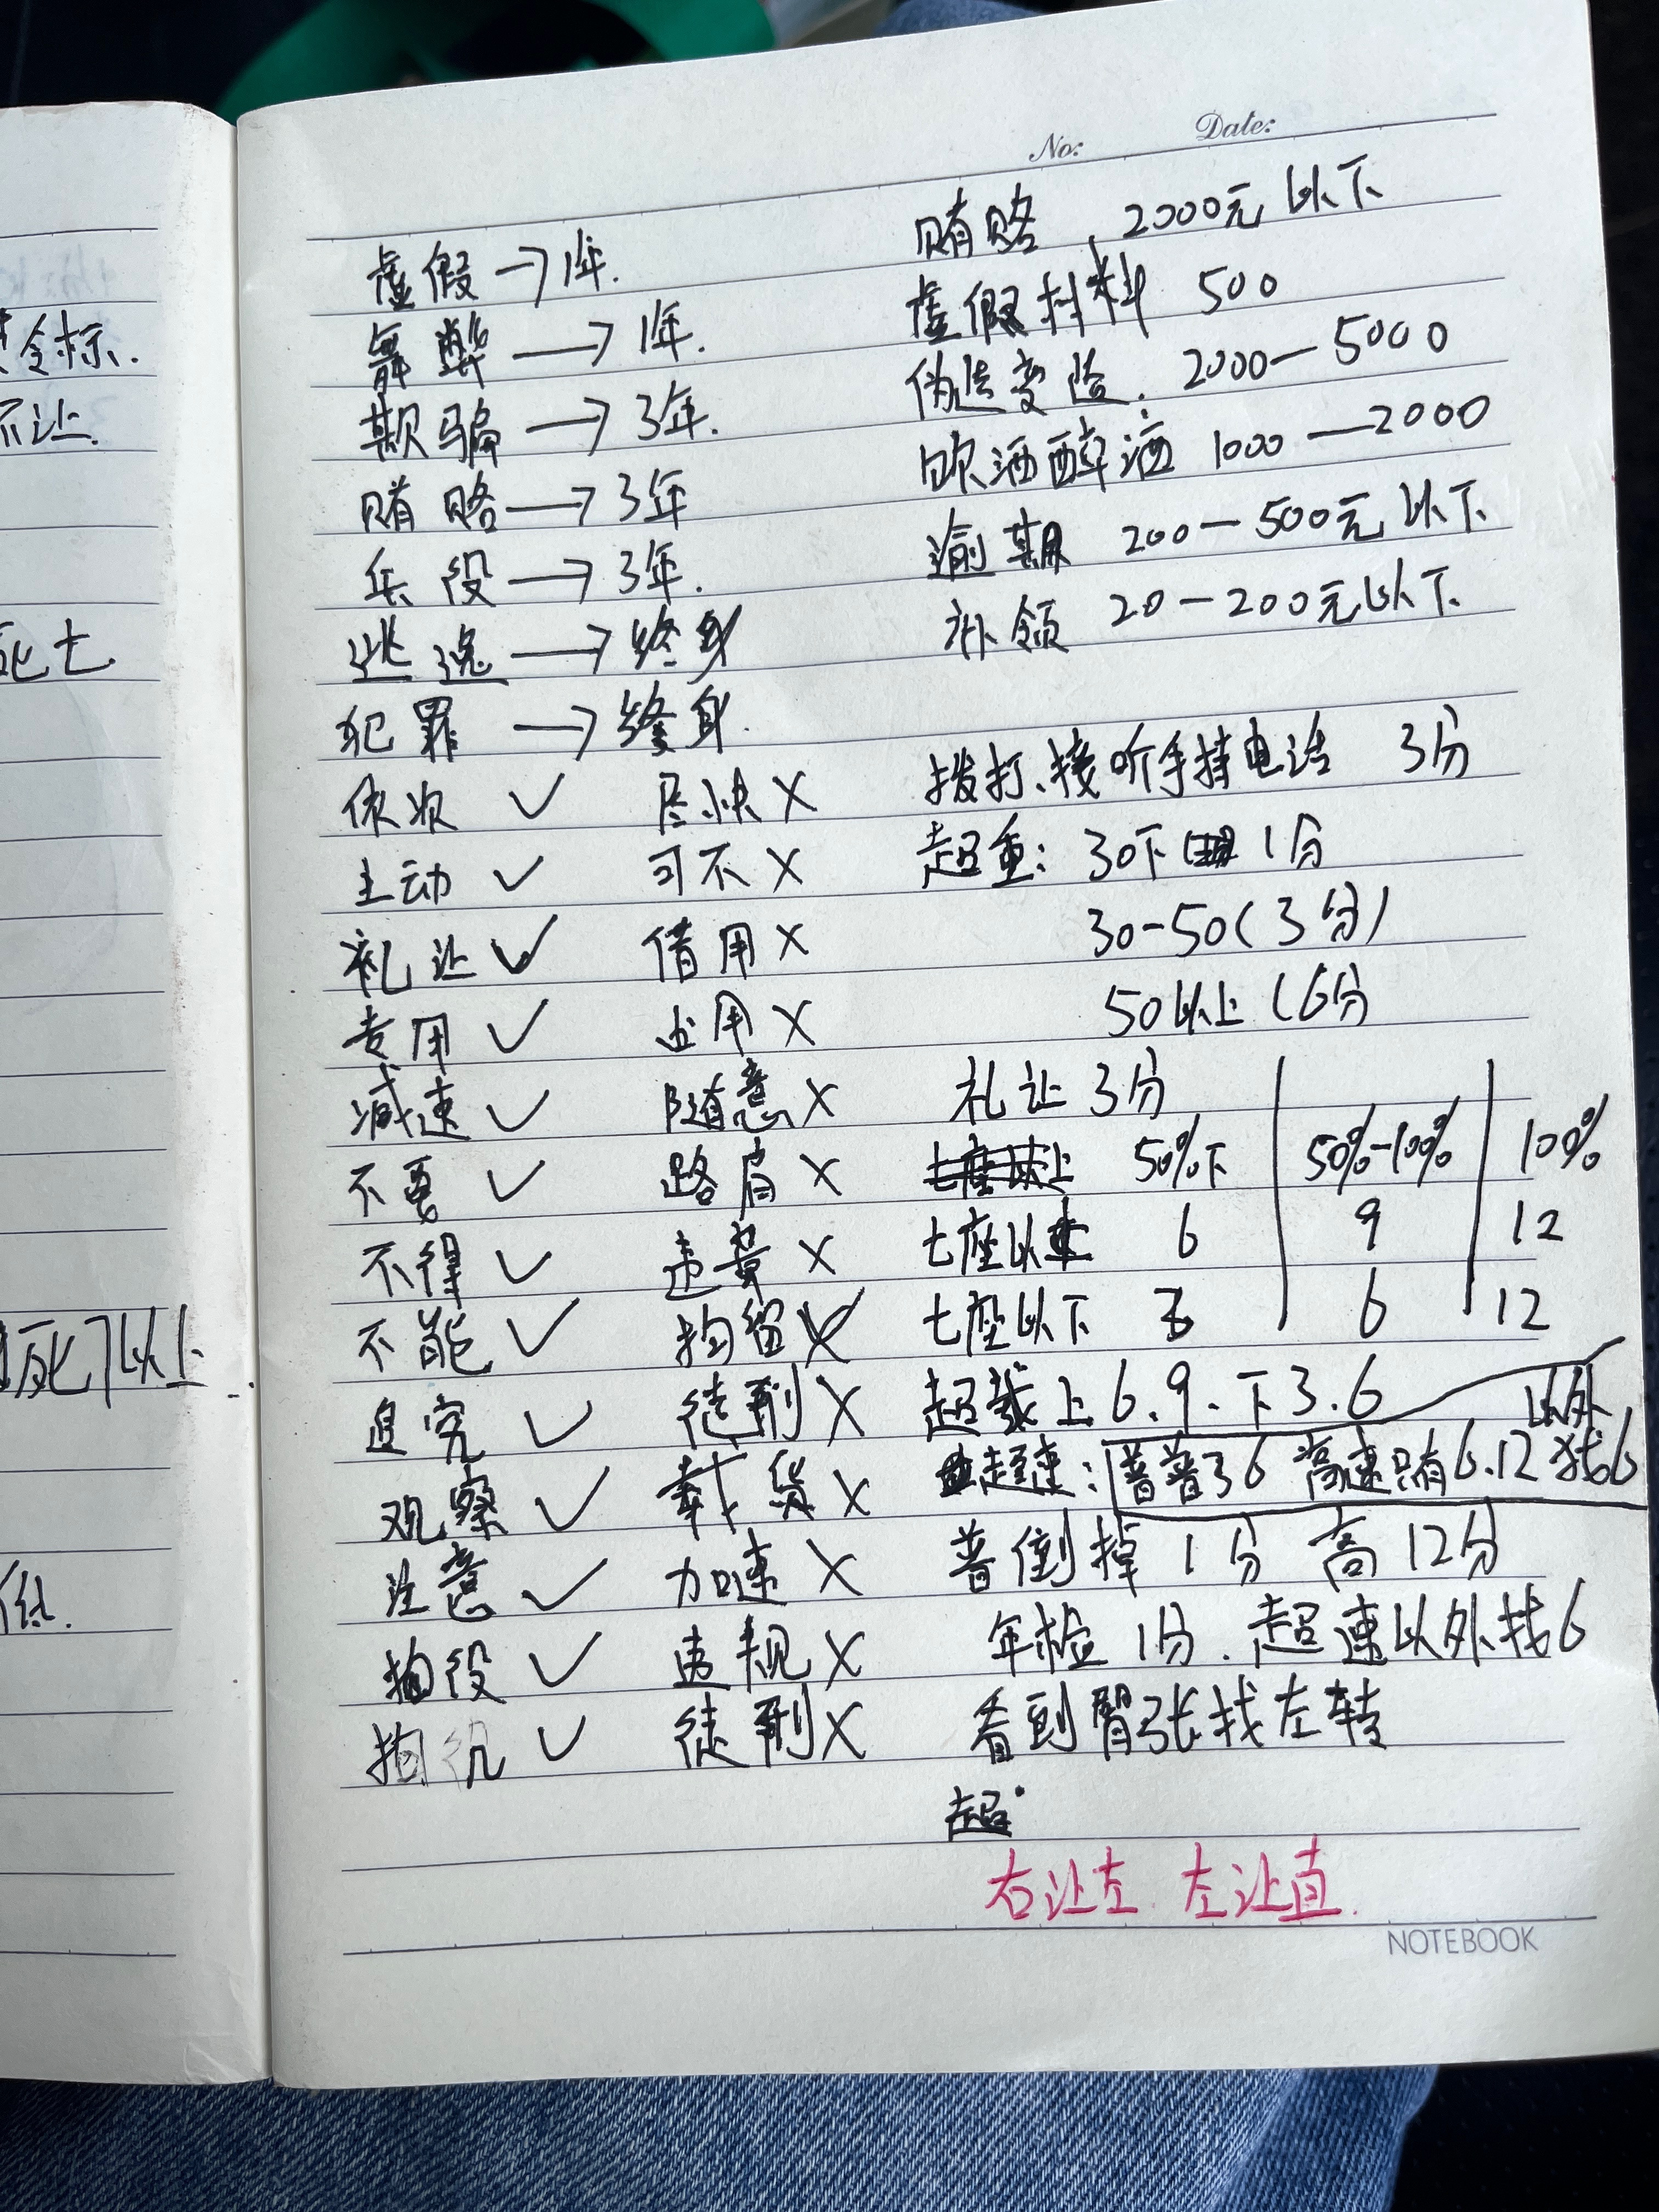 No: Date:
虚假→1年.
舞弊→1年.
欺骗→3年.
贿赂→3年
兵役→3年.
逃逸→终身
犯罪→终身.
依次 ✓ 尽快 ×
主动 ✓ 可不 ×
礼让 ✓ 借用 ×
专用 ✓ 占用 ×
减速 ✓ 随意 ×
不要 ✓ 路肩 ×
不得 ✓ 违章 ×
不能 ✓ 拘留 ×
追究 ✓ 徒刑 ×
观察 ✓ 载货 ×
注意 ✓ 加速 ×
拘役 ✓ 违规 ×
拘役 ✓ 徒刑 ×
贿赂, 2000元以下
虚假材料 500
伪造变造. 2000—5000
饮酒醉酒 1000—2000
逾期 200—500元以下
补领 20—200元以下
拨打、接听手持电话 3分
超重: 30下 1分
30-50(3分)
50以上(6分
礼让 3分
50%下 50%-100% 100%
七座以上 6 9 12
七座以下 3 6 12
超载上6.9、下3.6
超速: 普普36 高速只有6.12 以外找6
普倒掉 1分 高12分
年检 1分. 超速以外找6
看到臂张找左转
超
右让左. 左让直.
NOTEBOOK
令标.
不让.
死亡
死1以上
低.